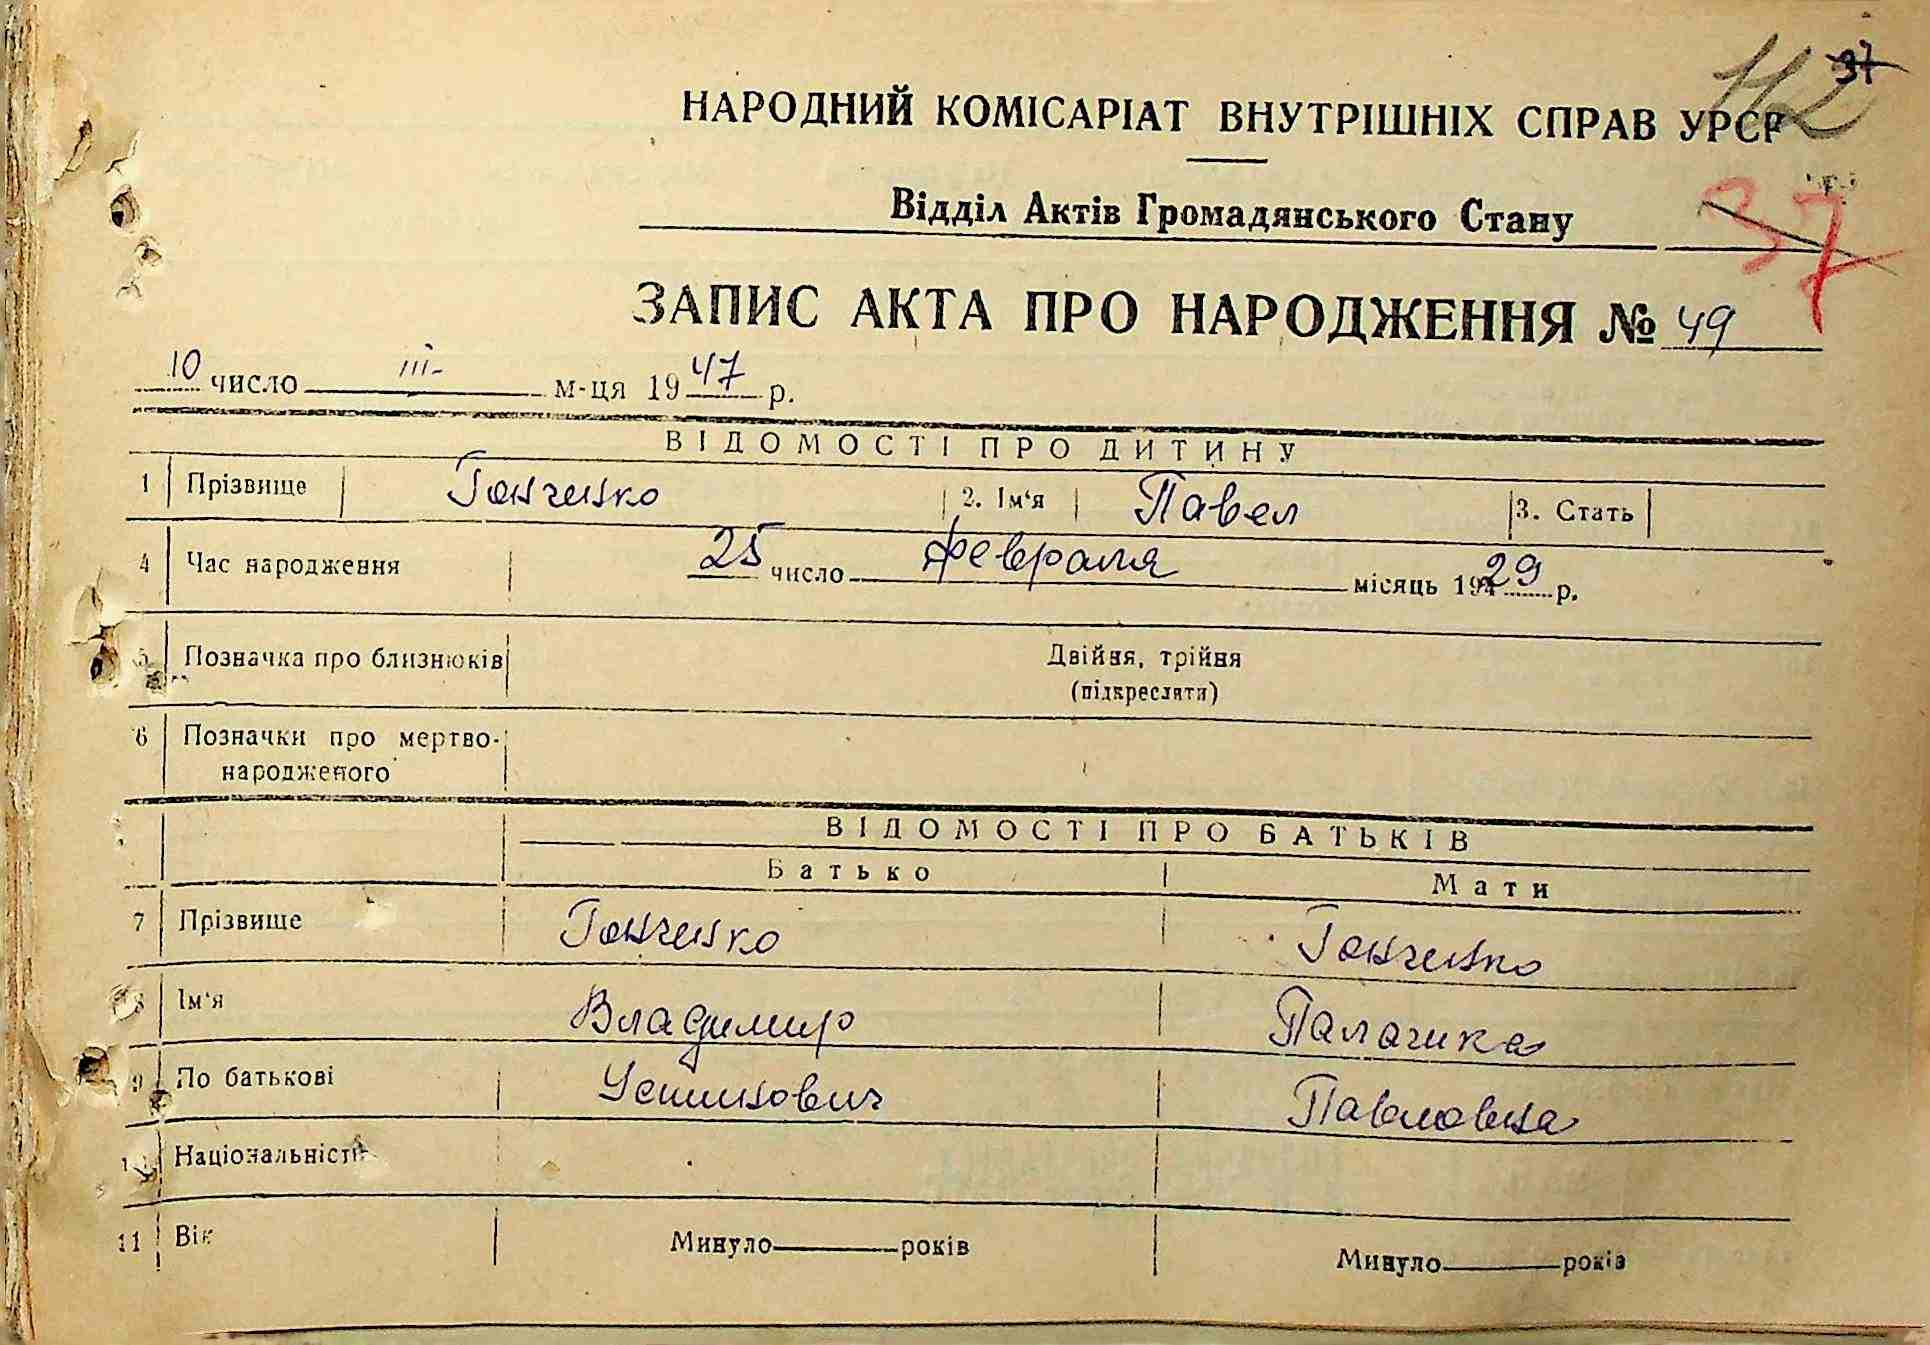 37
112
НАРОДНИЙ КОМІСАРІАТ ВНУТРІШНІХ СПРАВ УРСР
Відділ Актів Громадянського Стану
37
ЗАПИС АКТА ПРО НАРОДЖЕННЯ № 49
10 число III- м-ця 1947 р.
ВІДОМОСТІ ПРО ДИТИНУ
1 Прізвище Гончинко 2. Ім'я Павел 3. Стать
4 Час народження 25 число февраля місяць 1929 р.
5 Позначка про близнюків Двійня, трійня
(підкреслити)
6 Позначки про мертво-
народженого
ВІДОМОСТІ ПРО БАТЬКІВ
Батько Мати
7 Прізвище Гончинко Гончинко
8 Ім'я Владимир Палагика
9 По батькові Устинович Павловна
10 Національність
11 Вік Минуло років Минуло років